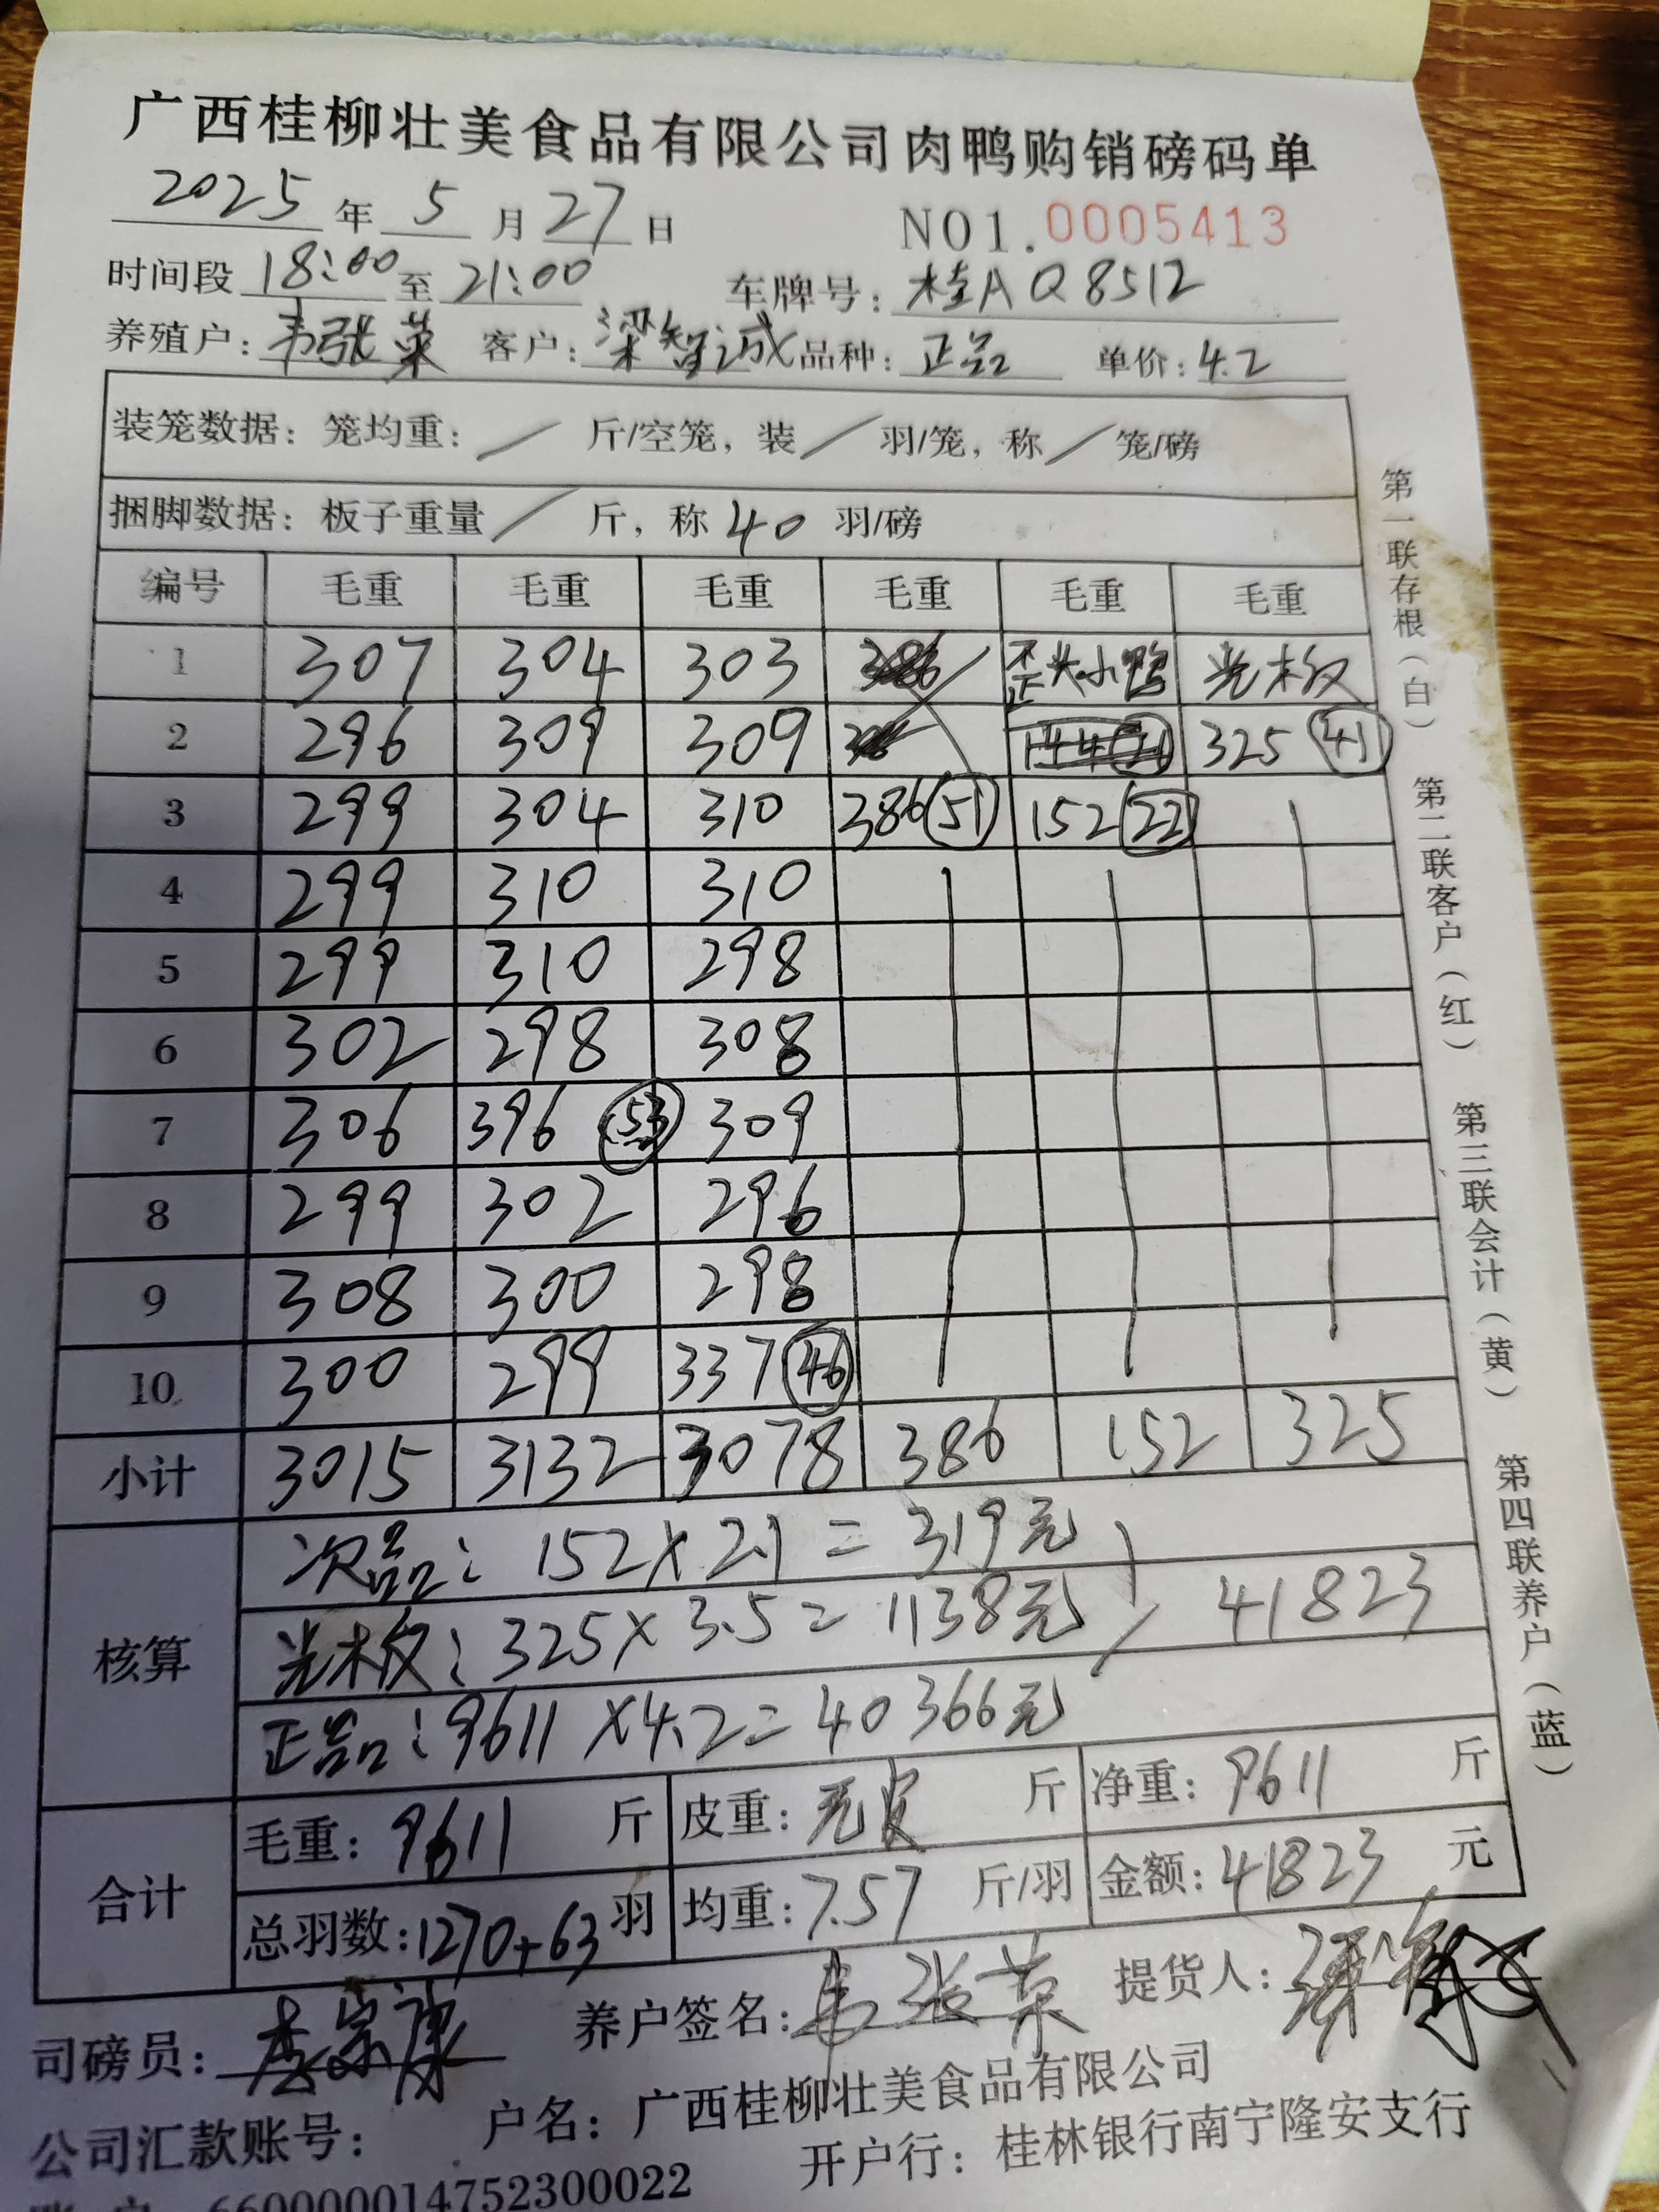 广西桂柳壮美食品有限公司肉鸭购销磅码单
2025年5月27日 NO1.0005413
时间段18:00至21:00 车牌号:桂AQ8512
养殖户:韦张荣 客户:梁智诚 品种:正品 单价:4.2
装笼数据:笼均重:/ 斤/空笼,装/羽/笼,称/笼/磅
捆脚数据:板子重量/斤,称40羽/磅
编号 毛重 毛重 毛重 毛重 毛重 毛重
1 307 304 303 386 歪头小鸭 光木板
2 296 309 309 144 325 (41)
3 299 304 310 386 (51) 152 (22)
4 299 310 310
5 299 310 298
6 302 298 308
7 306 396 (53) 309
8 299 302 296
9 308 300 298
10 300 299 337 (46)
小计 3015 3132 3078 386 152 325
核算
次品:152×2.1=319元
光木板:325×3.5=1138元 41823
正品:9611×4.2=40366元
合计
毛重:9611斤 皮重:无皮斤 净重:9611斤
总羽数:1270+63羽 均重:7.57斤/羽 金额:41823元
司磅员:李宗康 养户签名:韦张荣 提货人:
公司汇款账号: 户名:广西桂柳壮美食品有限公司
660000014752300022 开户行:桂林银行南宁隆安支行
第一联存根(白)
第二联客户(红)
第三联会计(黄)
第四联养户(蓝)